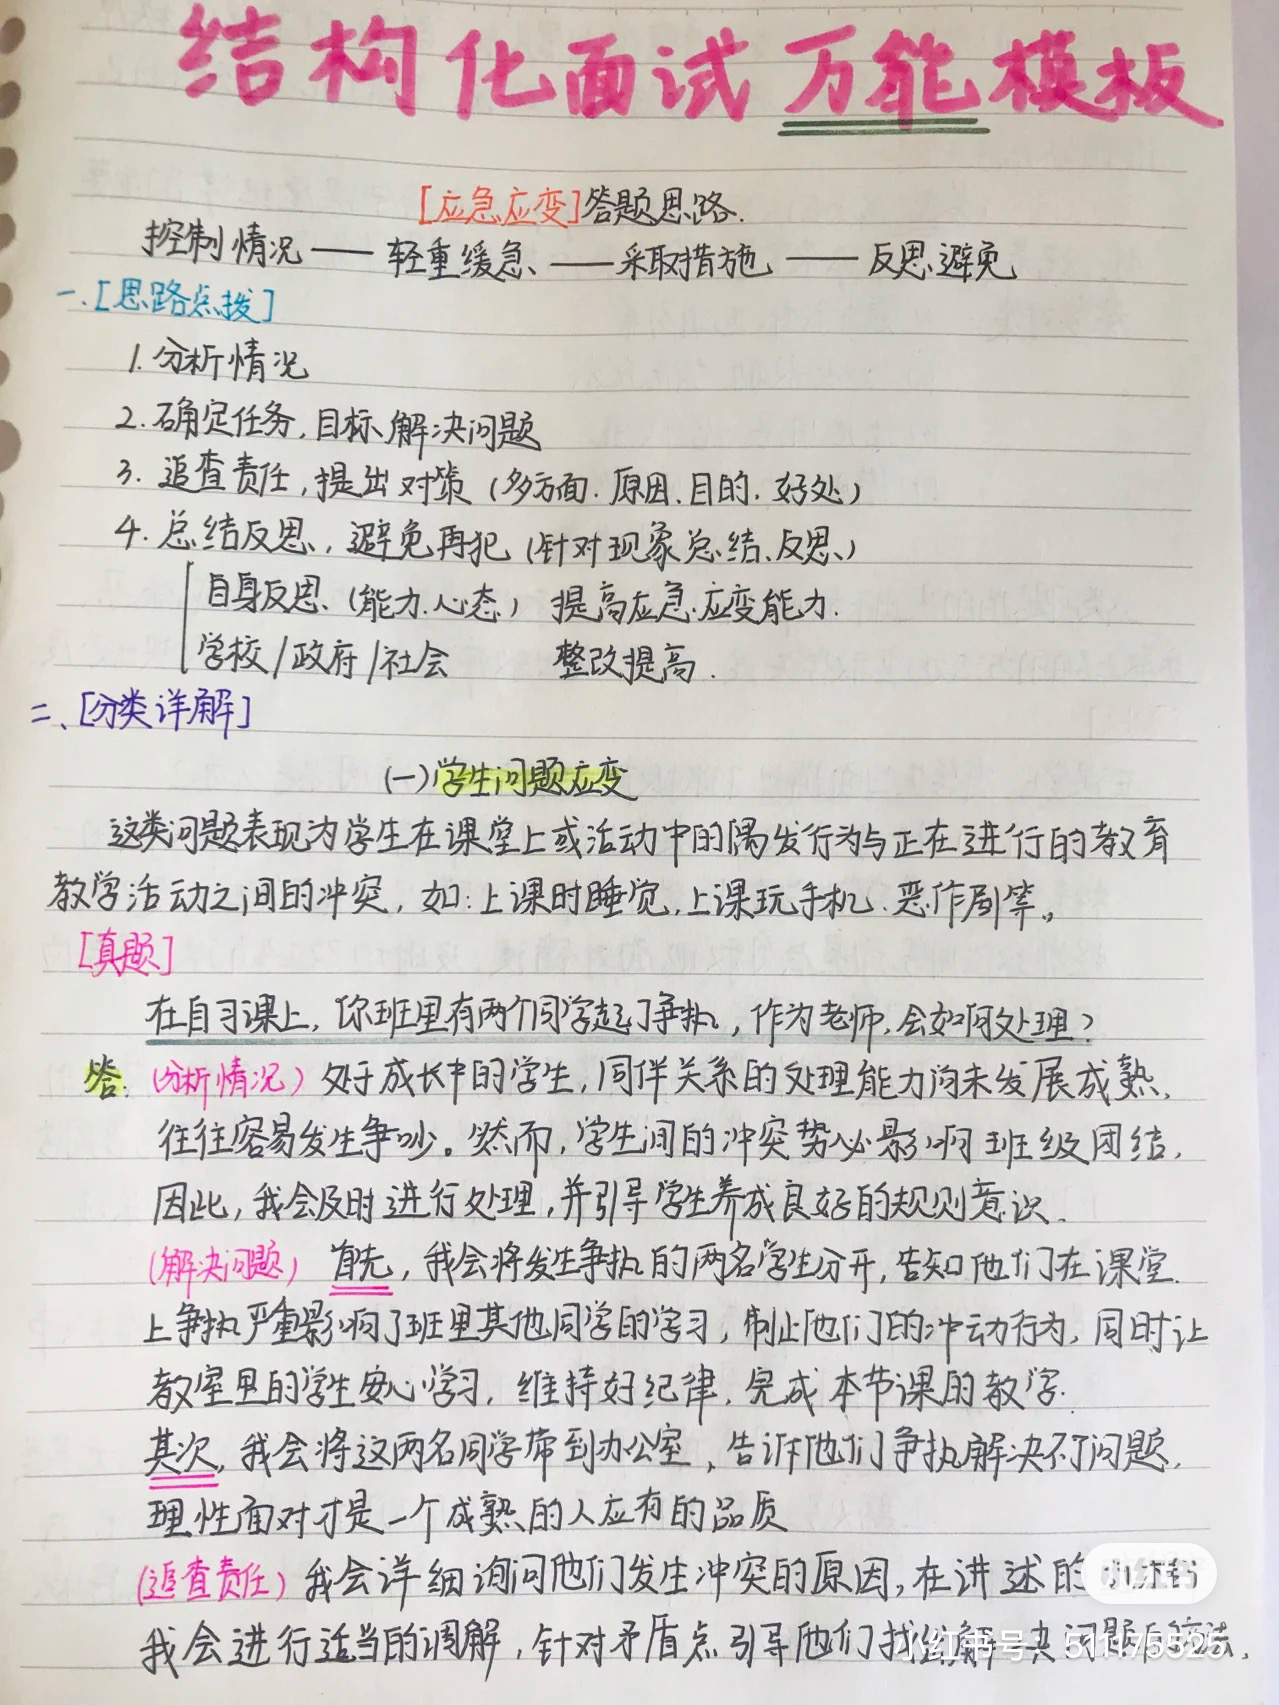 结构化面试万能模板
[应急应变]答题思路.
控制情况——轻重缓急、——采取措施——反思避免
一、[思路点拨]
1. 分析情况
2. 确定任务,目标、解决问题
3. 追查责任,提出对策(多方面.原因.目的.好处)
4. 总结反思,避免再犯(针对现象总结、反思、)
自身反思、(能力.心态) 提高应急、应变能力.
学校/政府/社会 整改提高.
二、[分类详解]
(一)学生问题应变
这类问题表现为学生在课堂上或活动中的偶发行为与正在进行的教育
教学活动之间的冲突,如:上课时睡觉,上课玩手机、恶作剧等。
[真题]
在自习课上,你班里有两个同学起了争执,作为老师,会如何处理?
答:(分析情况)处于成长中的学生,同伴关系的处理能力尚未发展成熟,
往往容易发生争吵。然而,学生间的冲突势必影响班级团结,
因此,我会及时进行处理,并引导学生养成良好的规则意识.
(解决问题)首先,我会将发生争执的两名学生分开,告知他们在课堂
上争执严重影响了班里其他同学的学习,制止他们的冲动行为,同时让
教室里的学生安心学习,维持好纪律,完成本节课的教学.
其次,我会将这两名同学带到办公室,告诉他们争执解决不了问题,
理性面对才是一个成熟的人应有的品质
(追查责任)我会详细询问他们发生冲突的原因,在讲述的
小红书
我会进行适当的调解,针对矛盾点引导他们找出解决问题的方法,
小红书号:511975525